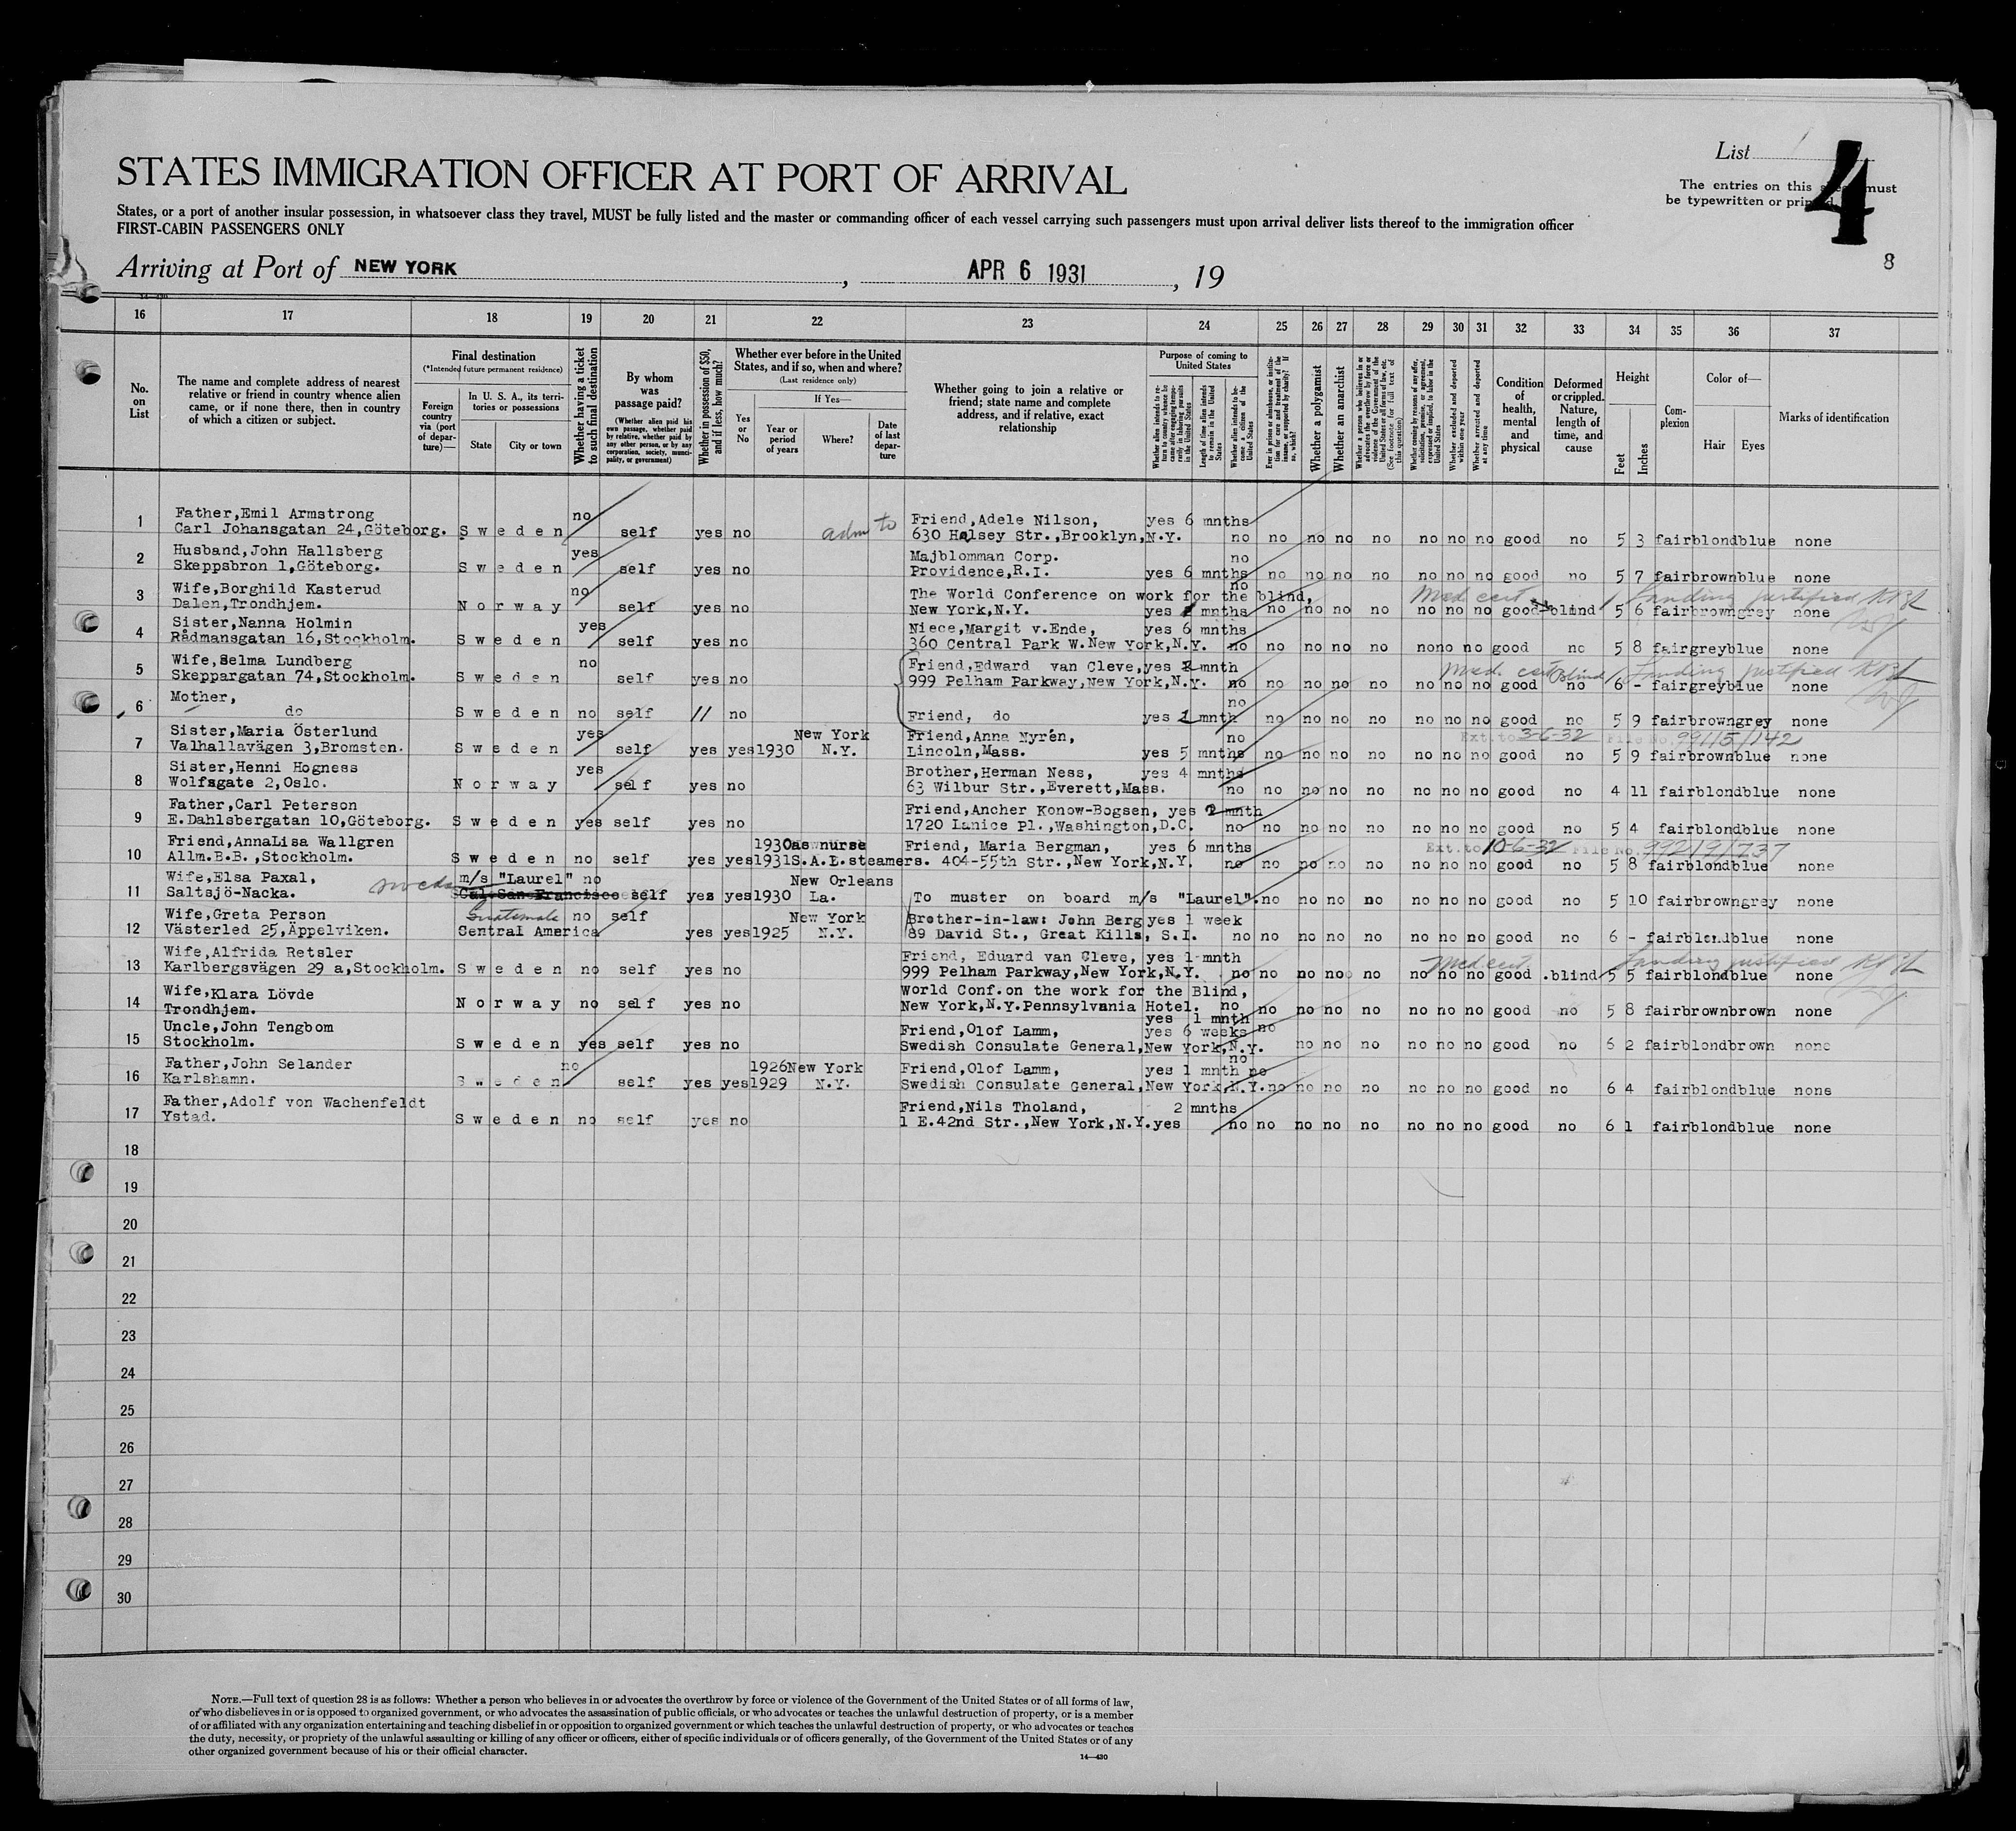 List 1
4
The entries on this must
be typewritten or printed.
STATES IMMIGRATION OFFICER AT PORT OF ARRIVAL
States, or a port of another insular possession, in whatsoever class they travel, MUST be fully listed and the master or commanding officer of each vessel carrying such passengers must upon arrival deliver lists thereof to the immigration officer
FIRST-CABIN PASSENGERS ONLY
Arriving at Port of NEW YORK, APR 6 1931, 19
8
16 17 18 19 20 21 22 23 24 25 26 27 28 29 30 31 32 33 34 35 36 37
No. on List
The name and complete address of nearest relative or friend in country whence alien came, or if none there, then in country of which a citizen or subject.
Final destination
(*Intended future permanent residence)
Foreign country via (port of departure)—
In U. S. A., its territories or possessions
State
City or town
Whether having a ticket to such final destination
By whom was passage paid?
(Whether alien paid his own passage, whether paid by relative, whether paid by any other person, or by any corporation, society, municipality, or government)
Whether in possession of $50, and if less, how much?
Whether ever before in the United States, and if so, when and where?
(Last residence only)
Yes or No
If Yes—
Year or period of years
Where?
Date of last departure
Whether going to join a relative or friend; state name and complete address, and if relative, exact relationship
Purpose of coming to United States
Whether alien intends to return to country whence he came after engaging temporarily in laboring pursuits in the United States
Length of time alien intends to remain in the United States
Whether alien intends to become a citizen of the United States
Ever in prison or almshouse, or institution for care and treatment of the insane, or supported by charity? If so, which?
Whether a polygamist
Whether an anarchist
Whether a person who believes in or advocates the overthrow by force or violence of the Government of the United States or all forms of law, etc. (See footnote for full text of this question)
Whether coming by reasons of any offer, solicitation, promise, or agreement, expressed or implied, to labor in the United States
Whether excluded and deported within one year
Whether arrested and deported at any time
Condition of health, mental and physical
Deformed or crippled. Nature, length of time, and cause
Height
Feet
Inches
Complexion
Color of—
Hair Eyes
Marks of identification
1 Father,Emil Armstrong no Friend,Adele Nilson, yes 6 mnths
Carl Johansgatan 24,Göteborg. Sweden self yes no adm to 630 Halsey Str.,Brooklyn,N.Y. no no no no no no no no good no 5 3 fair blond blue none
2 Husband,John Hallsberg yes Majblomman Corp. no
Skeppsbron 1,Göteborg. Sweden self yes no Providence,R.I. yes 6 mnths no no no no no no no good no 5 7 fair brown blue none
3 Wife,Borghild Kasterud no The World Conference on work for the blind, no Med cert Landing justified
Dalen,Trondhjem. Norway self yes no New York,N.Y. yes 1 mnths no no no no no no no good blind 5 6 fair brown grey none
4 Sister,Nanna Holmin yes Niece,Margit v.Ende, yes 6 mnths
Rådmansgatan 16,Stockholm. Sweden self yes no 360 Central Park W.New York,N.Y. no no no no no no no no good no 5 8 fair grey blue none
5 Wife,Selma Lundberg no Friend,Edward van Cleve,yes 1 mnth Med. cert Blind Landing justified
Skeppargatan 74,Stockholm. Sweden self yes no 999 Pelham Parkway,New York,N.Y. no no no no no no no no good no 6 - fair grey blue none
6 Mother, no
do Sweden no self // no Friend, do yes 1 mnth no no no no no no no good no 5 9 fair brown grey none
7 Sister,Maria Österlund yes New York Friend,Anna Nyrén, no Ext. to 3-6-32 File No. 99115/142
Valhallavägen 3,Bromsten. Sweden self yes yes 1930 N.Y. Lincoln,Mass. yes 5 mnths no no no no no no no good no 5 9 fair brown blue none
8 Sister,Henni Hogness yes Brother,Herman Ness, yes 4 mnths
Wolfsgate 2,Oslo. Norway self yes no 63 Wilbur Str.,Everett,Mass. no no no no no no no no good no 4 11 fair blond blue none
9 Father,Carl Peterson Friend,Ancher Konow-Bogsen, yes 2 mnth
E.Dahlsbergatan 10,Göteborg. Sweden yes self yes no 1720 Lanice Pl.,Washington,D.C. no no no no no no no no good no 5 4 fair blond blue none
10 Friend,AnnaLisa Wallgren 1930 as nurse Friend, Maria Bergman, yes 6 mnths Ext. to 10-6-32 File No. 99219/737
Allm.B.B.,Stockholm. Sweden no self yes yes 1931 S.A.L.steamers. 404-55th Str.,New York,N.Y. no no no no no no no no good no 5 8 fair blond blue none
11 Wife,Elsa Paxal, m/s "Laurel" no New Orleans
Saltsjö-Nacka. Cal. San Francisco self yes yes 1930 La. To muster on board m/s "Laurel". no no no no no no no good no 5 10 fair brown grey none
12 Wife,Greta Person Guatemala no self New York Brother-in-law: John Berg yes 1 week
Västerled 25,Äppelviken. Central America yes yes 1925 N.Y. 89 David St., Great Kills, S.I. no no no no no no no no good no 6 - fair blond blue none
13 Wife,Alfrida Retsler Friend, Eduard van Cleve, yes 1 mnth Med cert Landing justified
Karlbergsvägen 29 a,Stockholm. Sweden no self yes no 999 Pelham Parkway,New York,N.Y. no no no no no no no no good .blind 5 5 fair blond blue none
14 Wife,Klara Lövde World Conf.on the work for the Blind,
Trondhjem. Norway no self yes no New York,N.Y.Pennsylvania Hotel. no no no no no no no no good no 5 8 fair brown brown none
yes 1 mnth
15 Uncle,John Tengbom Friend,Olof Lamm, yes 6 weeks no
Stockholm. Sweden yes self yes no Swedish Consulate General,New York,N.Y. no no no no no no good no 6 2 fair blond brown none
no
16 Father,John Selander no 1926 New York Friend,Olof Lamm, yes 1 mnth no
Karlshamn. Sweden self yes yes 1929 N.Y. Swedish Consulate General,New York,N.Y. no no no no no no no good no 6 4 fair blond blue none
17 Father,Adolf von Wachenfeldt Friend,Nils Tholand, 2 mnths
Ystad. Sweden no self yes no 1 E.42nd Str.,New York,N.Y. yes no no no no no no no no good no 6 1 fair blond blue none
18
19
20
21
22
23
24
25
26
27
28
29
30
NOTE.—Full text of question 28 is as follows: Whether a person who believes in or advocates the overthrow by force or violence of the Government of the United States or of all forms of law,
or who disbelieves in or is opposed to organized government, or who advocates the assassination of public officials, or who advocates or teaches the unlawful destruction of property, or is a member
of or affiliated with any organization entertaining and teaching disbelief in or opposition to organized government or which teaches the unlawful destruction of property, or who advocates or teaches
the duty, necessity, or propriety of the unlawful assaulting or killing of any officer or officers, either of specific individuals or of officers generally, of the Government of the United States or of any
other organized government because of his or their official character.
14—430